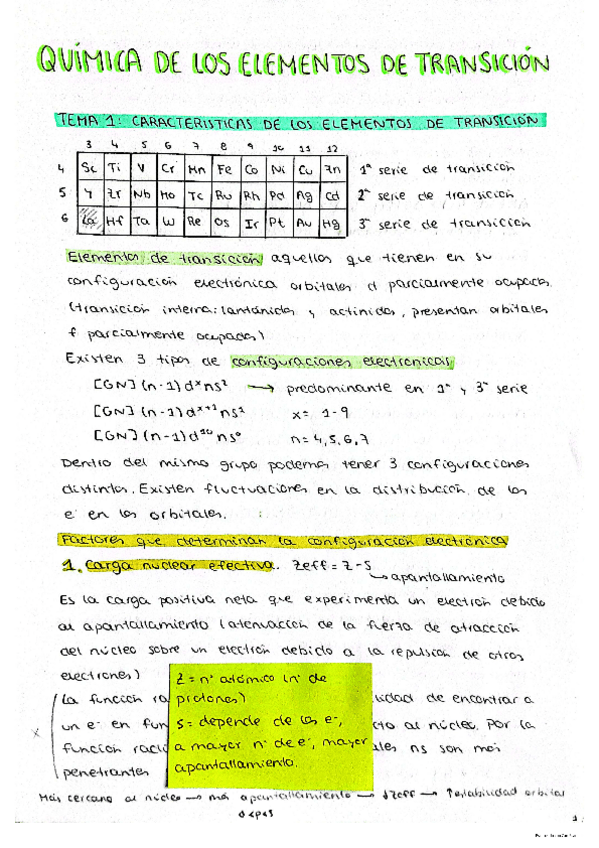 QUÍMICA DE LOS ELEMENTOS DE TRANSICIÓN
TEMA 1: CARACTERISTICAS DE LOS ELEMENTOS DE TRANSICIÓN
3 4 5 6 7 8 9 10 11 12
4 Sc Ti V Cr Mn Fe Co Ni Cu Zn 1ª serie de transición
5 Y Zr Nb Mo Tc Ru Rh Pd Ag Cd 2ª serie de transición
6 La Hf Ta W Re Os Ir Pt Au Hg 3ª serie de transición
Elementos de transición aquellos que tienen en su
configuración electrónica orbitales d parcialmente ocupados.
(transición interna: lantánidos y actínidos, presentan orbitales
f parcialmente ocupados)
Existen 3 tipos de configuraciones electronicas
[GN] (n-1) dˣ ns² → predominante en 1ª y 3ª serie
[GN] (n-1) dˣ⁺¹ ns² x= 1-9
[GN] (n-1) d¹⁰ ns⁰ n= 4,5,6,7
Dentro del mismo grupo podemos tener 3 configuraciones
distintas. Existen fluctuaciones en la distribución de los
e⁻ en los orbitales.
Factores que determinan la configuración electrónica
1. Carga nuclear efectiva. Zeff = Z - S
apantallamiento
Es la carga positiva neta que experimenta un electrón debido
al apantallamiento (atenuación de la fuerza de atracción
del núcleo sobre un electrón debido a la repulsión de otros
electrones)
Z = nº atómico (nº de
protones)
S = depende de los e⁻,
a mayor nº de e⁻, mayor
apantallamiento.
La función ra lidad de encontrar a
x un e⁻ en fun cto al núcleo. Por la
función radia les ns son más
penetrantes
Más cercano al núcleo → más apantallamiento → ↓Zeff → ↑estabilidad orbital